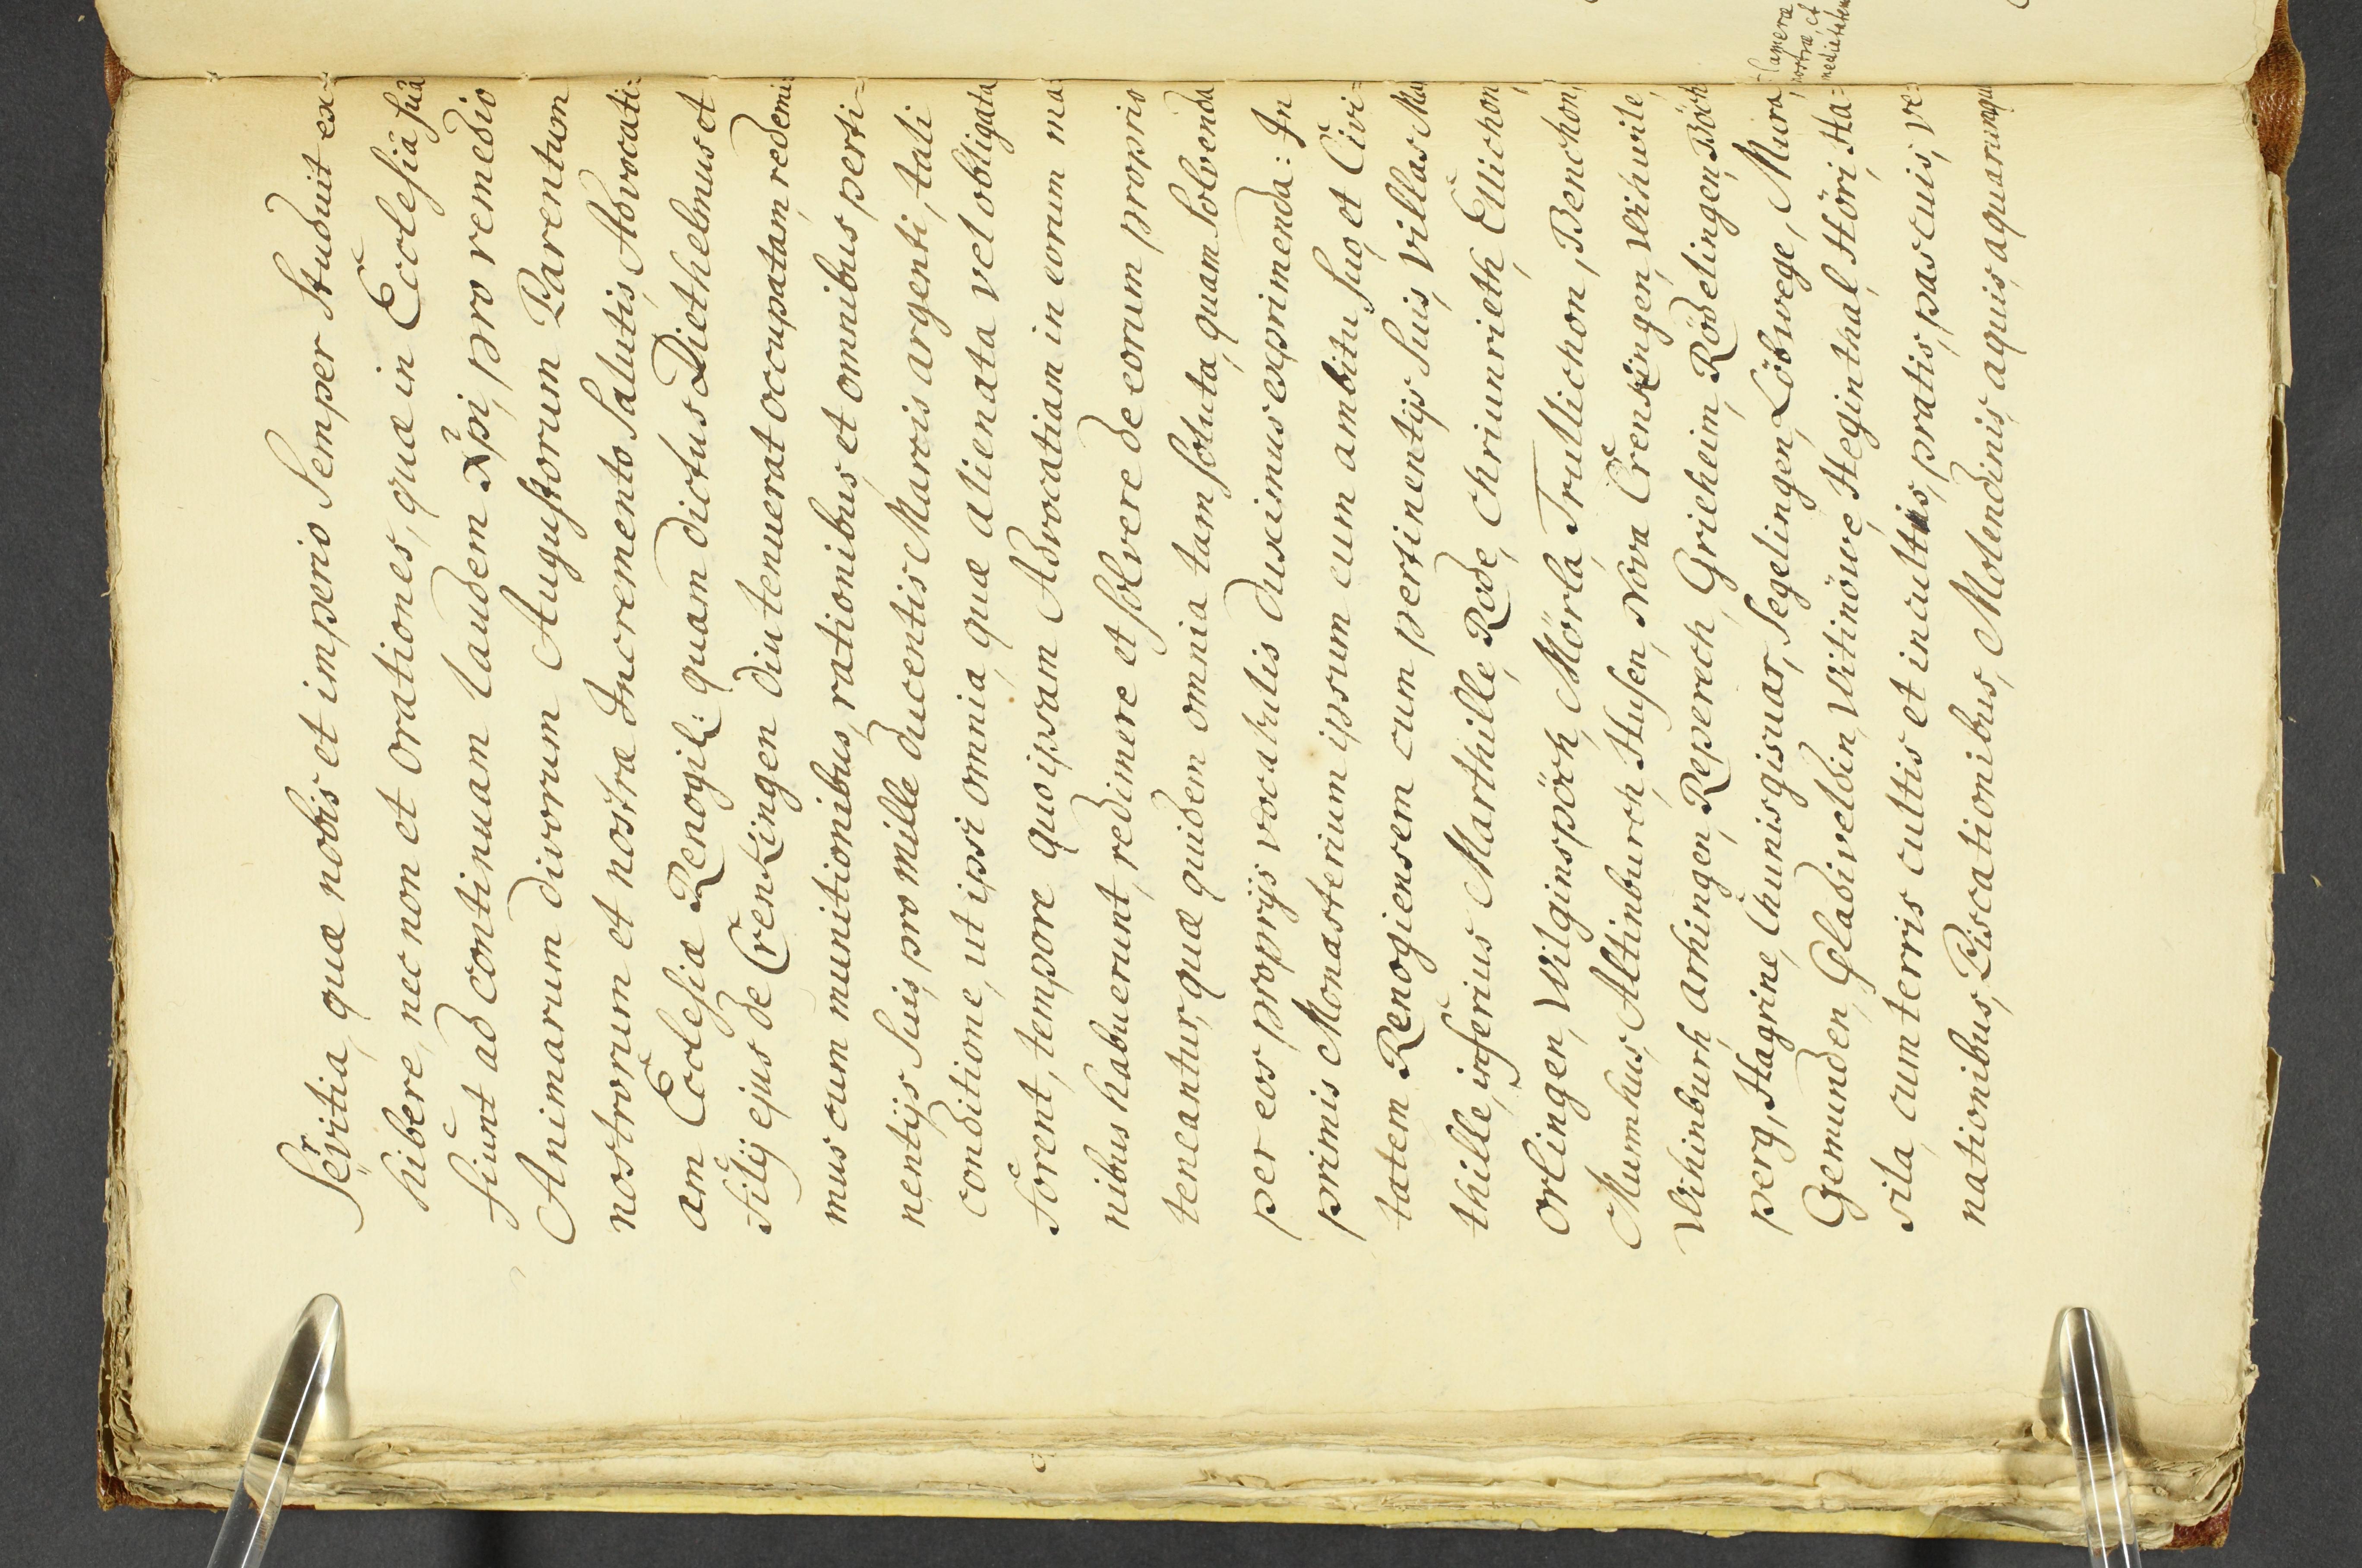 Servitia, quæ nobis et imperio Semper Studuit ex=
hibere, nec non et orationes, quæ in Ecclesiâ suâ
fiunt ad continuam laudem Xp̃i, pro remedio
Animarum divorum Augustorum Parentum
nostrorum et nostræ Incremento Salutis, Advocati=
am Ecclesiæ Renogil: quam dictus Diethelmus et
Filij ejus de Crenkingen diu tenuerat occupatam, redemi=
mus cum munitionibus, rationibus, et omnibus perti=
nentijs Suis, pro mille ducentis Marcis argenti, tali
conditione, ut ipsi omnia, quæ alienata vel obligata
forent, tempore quo ipsam Advocatiam in eorum ma=
nibus habuerunt, redimere et solvere de eorum propris
teneantur, quæ quidem omnia tam soluta, quam Solvenda
per eos proprijs vocabulis duximus exprimenda: In
primis Monasterium ipsum cum ambitu Suo, et Civi=
tatem Renogiensem cum pertinentijs Suis, Villas Mar
thille, inferius Marthille, Rode, Chriunrieth, Ellichon,
Orlingen, Wilginspöch, Mörla, Trullichon, Benchon,
Mumhus, Altinburch, Husen, Nova Crenkingen, Wihwile,
Wihinburh, arhingen, Reperch, Gricheim, Rödelingen, Böch
perg, Hagrine, Chunisgisuar, Segelingen, Löbwege, Mura,
Camera
nostræ, et
medietatem
Gzemunden, Gladiveldin, Witinöwe, Heginthal, Höri, Ha=
sila, cum terris cultis et incultis, pratis, pascuis, ve=
nationibus, Piscationibus, Molendinis, aquis, aquarumque